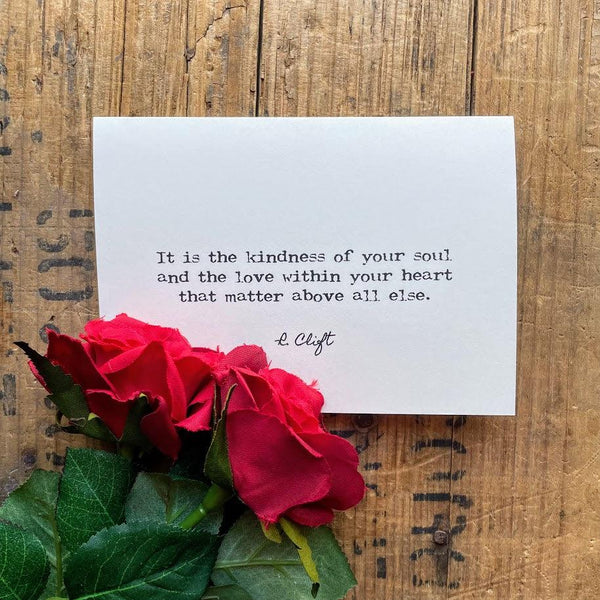 It is the kindness of your soul
and the love within your heart
that matter above all else.
R. Clift